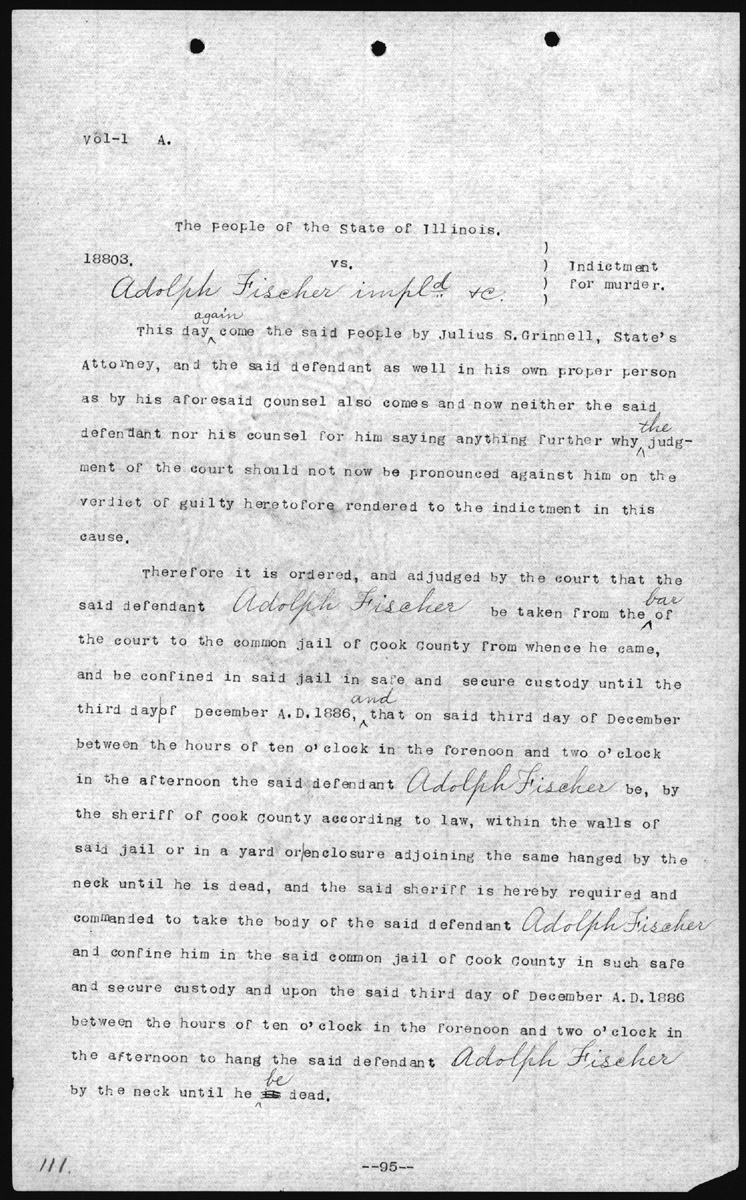 vol-1 A.
The people of the State of Illinois.
18803. vs. ) Indictment
Adolph Fischer impl.d &c. ) for murder.
This day again come the said people by Julius S. Grinnell, State's
Attorney, and the said defendant as well in his own proper person
as by his aforesaid counsel also comes and now neither the said
defendant nor his counsel for him saying anything further why the judg-
ment of the court should not now be pronounced against him on the
verdict of guilty heretofore rendered to the indictment in this
cause.
Therefore it is ordered, and adjudged by the court that the
said defendant Adolph Fischer be taken from the bar of
the court to the common jail of Cook County from whence he came,
and be confined in said jail in safe and secure custody until the
third day of December A.D. 1886, and that on said third day of December
between the hours of ten o'clock in the forenoon and two o'clock
in the afternoon the said defendant Adolph Fischer be, by
the sheriff of Cook County according to law, within the walls of
said jail or in a yard or enclosure adjoining the same hanged by the
neck until he is dead, and the said sheriff is hereby required and
commanded to take the body of the said defendant Adolph Fischer
and confine him in the said common jail of Cook County in such safe
and secure custody and upon the said third day of December A.D. 1886
between the hours of ten o'clock in the forenoon and two o'clock in
the afternoon to hang the said defendant Adolph Fischer
by the neck until he be dead.
111. --95--